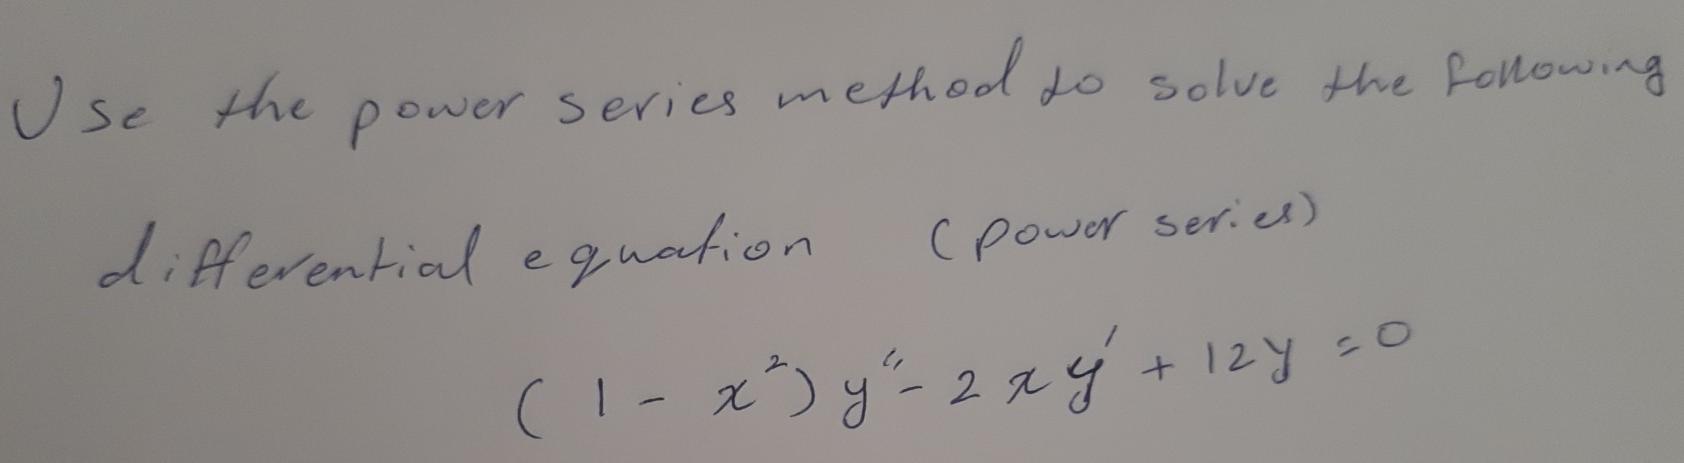 Use the power series method to solve the following
differential equation (power series)
(1 - x²) y'' - 2xy' + 12y = 0